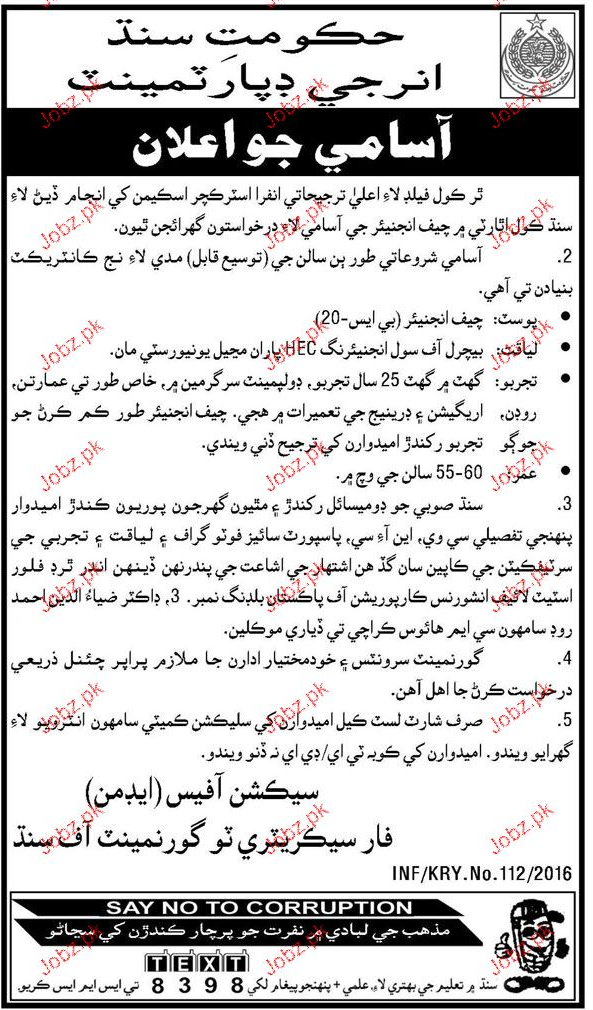 حڪومتِ سنڌ
انرجي ڊپارٽمينٽ
آسامي جو اعلان
ٿر ڪول فيلڊ لاءِ اعليٰ ترجيحاتي انفرا اسٽرڪچر اسڪيمن کي انجام ڏيڻ لاءِ
سنڌ ڪول اٿارٽي ۾ چيف انجنيئر جي آسامي لاءِ درخواستون گهرائجن ٿيون.
2. آسامي شروعاتي طور ٻن سالن جي (توسيع قابل) مدي لاءِ نج ڪانٽريڪٽ
بنيادن تي آهي.
• پوسٽ: چيف انجنيئر (بي ايس-20)
• لياقت: بيچرل آف سول انجنيئرنگ HEC پاران مڃيل يونيورسٽي مان.
• تجربو: گهٽ ۾ گهٽ 25 سال تجربو، ڊولپمينٽ سرگرمين ۾، خاص طور تي عمارتن،
روڊن، اريگيشن ۽ ڊرينيج جي تعميرات ۾ هجي. چيف انجنيئر طور ڪم ڪرڻ جو
جوڳو تجربو رکندڙ اميدوارن کي ترجيح ڏني ويندي.
• عمر: 55-60 سالن جي وچ ۾.
3. سنڌ صوبي جو ڊوميسائل رکندڙ ۽ مٿيون گهرجون پوريون ڪندڙ اميدوار
پنهنجي تفصيلي سي وي، اين آءِ سي، پاسپورٽ سائيز فوٽو گراف ۽ لياقت ۽ تجربي جي
سرٽيفڪيٽن جي ڪاپين سان گڏ هن اشتهار جي اشاعت جي پندرنهن ڏينهن اندر ٿرڊ فلور
اسٽيٽ لائيف انشورنس ڪارپوريشن آف پاڪستان بلڊنگ نمبر. 3، ڊاڪٽر ضياءُ الدين احمد
روڊ سامهون سي ايم هائوس ڪراچي تي ڏياري موڪلين.
4. گورنمينٽ سرونٽس ۽ خودمختيار ادارن جا ملازم پراپر چئنل ذريعي
درخواست ڪرڻ جا اهل آهن.
5. صرف شارٽ لسٽ ڪيل اميدوارن کي سليڪشن ڪميٽي سامهون انٽرويو لاءِ
گهرايو ويندو. اميدوارن کي ڪوبه ٽي اي/ڊي اي نه ڏنو ويندو.
سيڪشن آفيس (ايڊمن)
فار سيڪريٽري ٽو گورنمينٽ آف سنڌ
INF/KRY.No.112/2016
SAY NO TO CORRUPTION
مذهب جي لبادي ۾ نفرت جو پرچار ڪندڙن کي سڃاڻو
TEXT
سنڌ ۾ تعليم جي بهتري لاءِ، علمي + پنهنجو پيغام لکي 8398 تي ايس ايم ايس ڪريو.
Jobz.pk